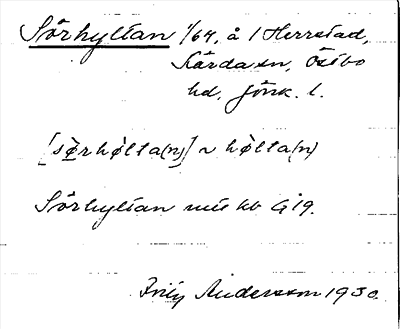 Sörhyltan 1/64, å 1 Herrstad,
Kärda sn, Östbo
hd, Jönk. l.
[sö̀rhø̀lta(n)] ~ hø̀lta(n)
Sörhyltan kb G 19.
Andersson 1930.